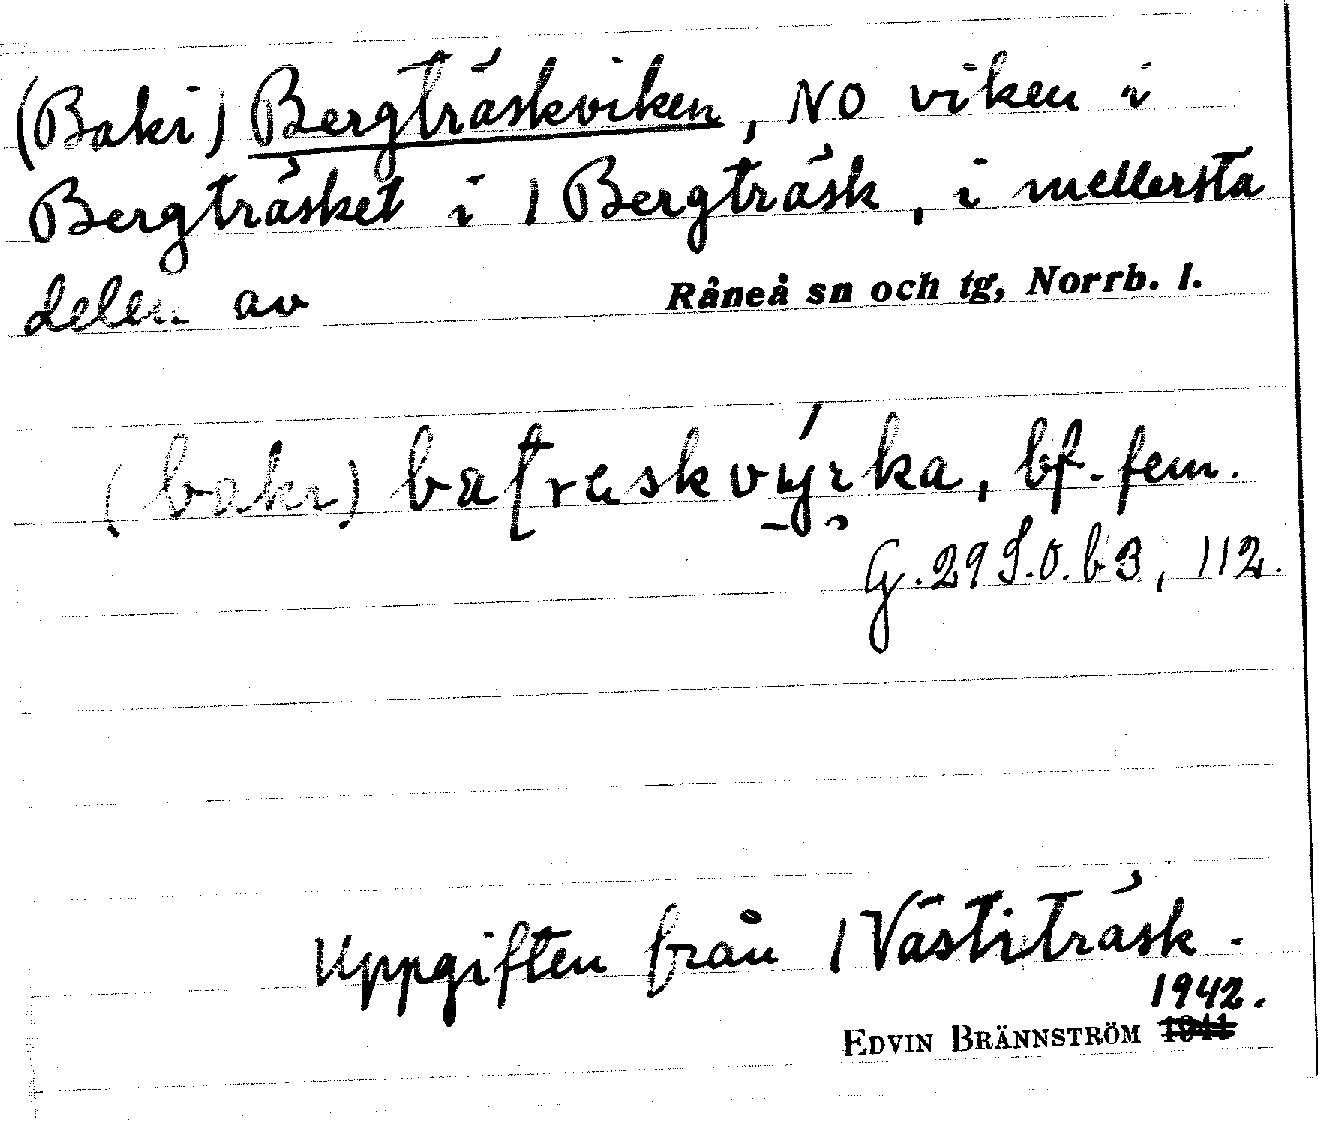 (Bakr) Bergträskviken, NO viken i
Bergträsket i / Bergträsk, i mellersta
delen av Råneå sn och tg, Norrb. l.
(bakr) baʈræskvýrka, bf. fem.
G. 29 S.O. b 3, 112.
Uppgiften från / Västiträsk.
1942.
EDVIN BRÄNNSTRÖM 1941